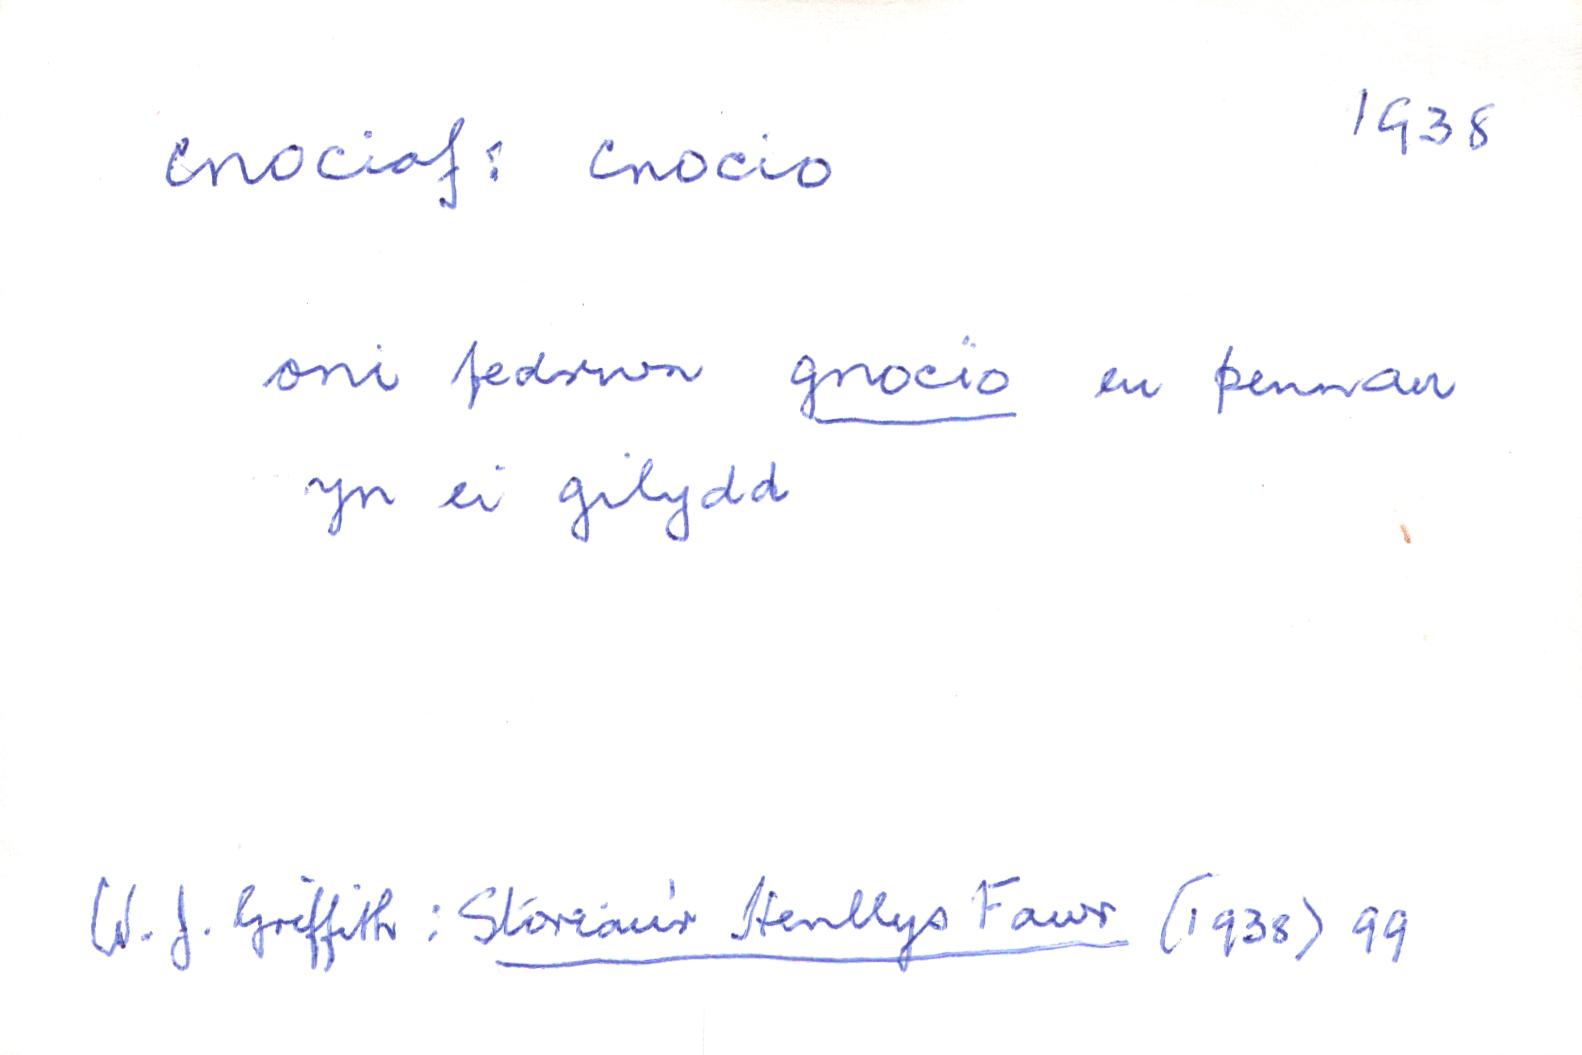 cnociaf: cnocio 1938
oni fedrwn gnocio eu pennau
yn ei gilydd
W. J. Griffith: Storïau'r Henllys Fawr (1938) 99